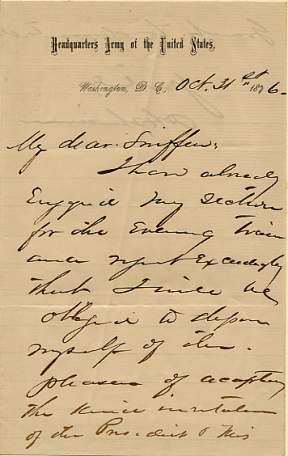 Headquarters Army of the United States,
Washington, D. C., Oct. 31st 1876.
My dear Sniffen,
I have already
Engaged my section
for the Evening train
and regret Exceedingly
that I will be
obliged to deprive
myself of the
pleasure of accepting
the kind invitation
of the President & Mrs